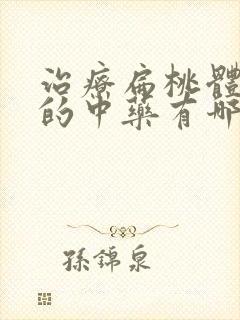 治療扁桃體
的中藥有哪
孫錦泉